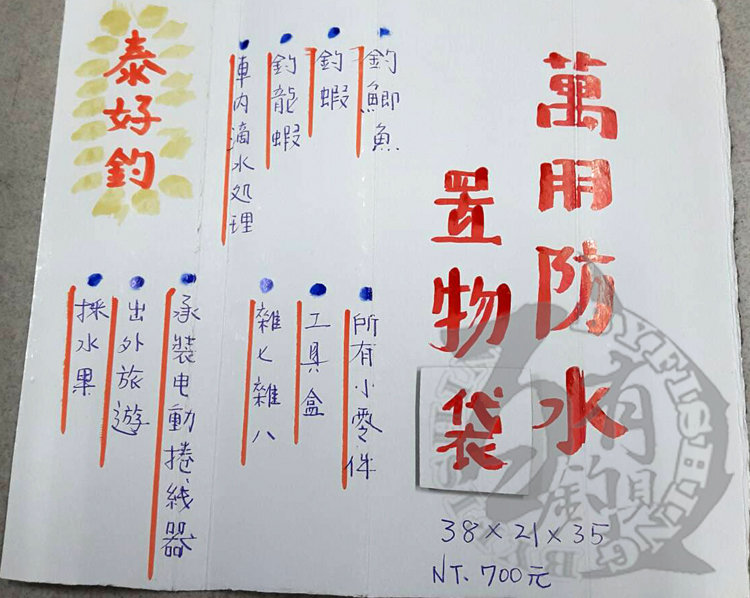 萬用防水
置物袋
38×21×35
NT. 700元
釣鯽魚
釣蝦
釣龍蝦
車內滴水处理
所有小零件
工具盒
雜七雜八
承裝电動捲线器
出外旅遊
採水果
泰好釣
釣具
FISHING